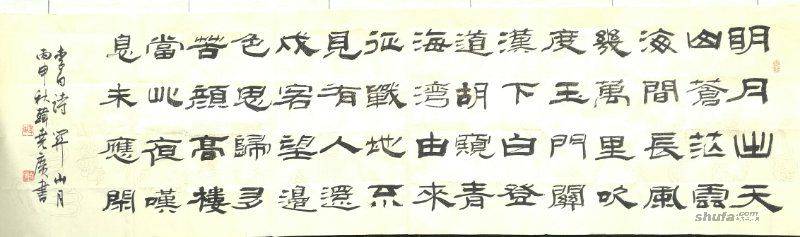 明月出天
山蒼茫雲
海間長風
幾萬里吹
度玉門關
漢下白登
道胡窺青
海灣由來
征戰地不
見有人還
戍客望邊
色思歸多
苦顏高樓
當此夜嘆
息未應閑
李白詩 關山月
丙申秋韓堯廣書
shufa.com